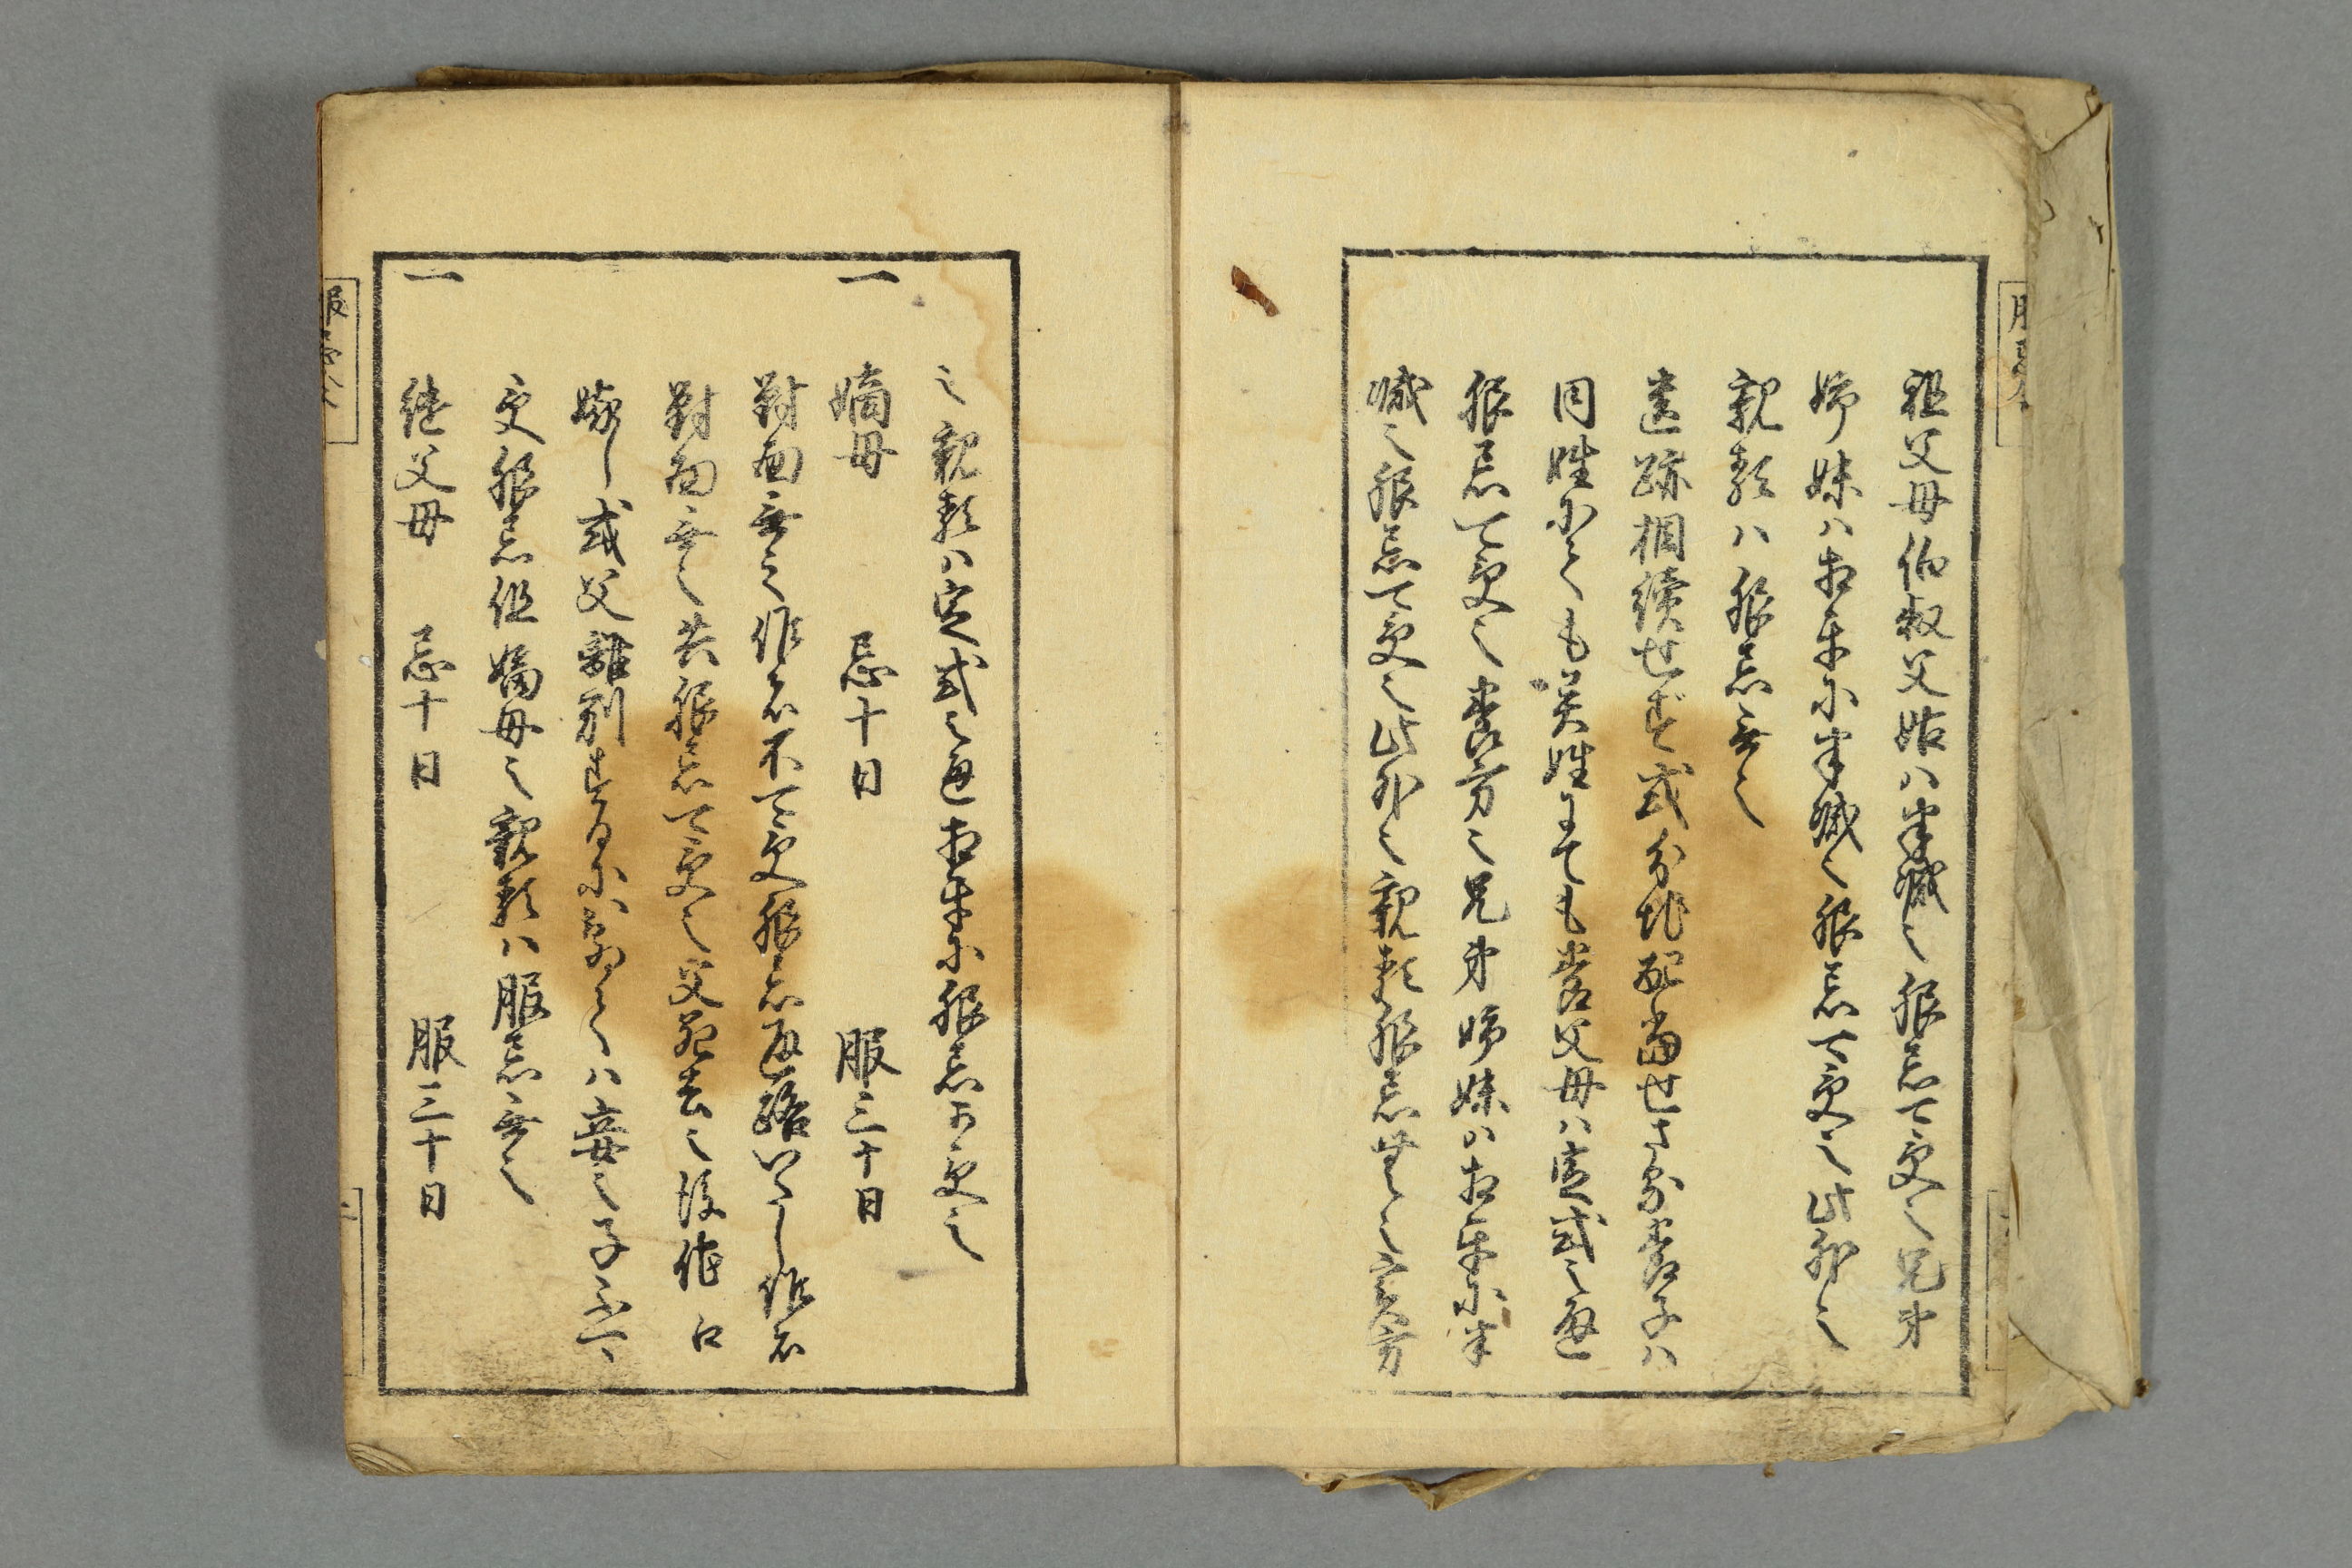 祖父母伯叔父姑ハ半減之服忌可受之兄弟
姉妹ハ相互ニ半減之服忌可受之此外之
親類ハ服忌無之
遺跡相続せす或分地配当せさる養子ハ
同姓にても異姓にても養父母ハ定式之通
服忌可受之養方之兄弟姉妹ハ相互ニ半
減之服忌可受之此外之親類服忌無之実方
之親類ハ定式之通相互ニ服忌可受之
一 嫡母 忌十日 服三十日
対面無之候ハ不可受服忌通路いたし候ハ
対面無之共服忌可受之父死去之後他江
嫁し或父離別するにおゐてハ妾之子不可
受服忌但嫡母之親類ハ服忌無之
一 継父母 忌十日 服三十日